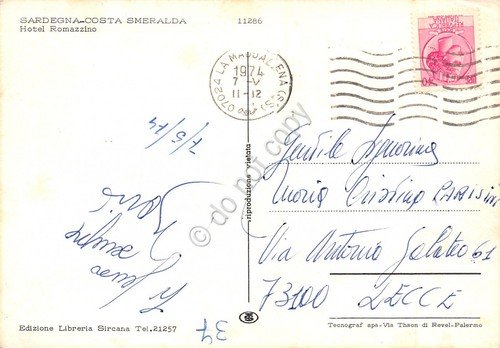 SARDEGNA-COSTA SMERALDA
Hotel Romazzino
11286
07024 LA MADDALENA (SS)
1974
7-V
11-12
7/5/74
Bacio
37
Edizione Libreria Sircana Tel.21257
riproduzione vietata
do not copy
Gentile Signorina
Maria Cristina
Via Antonio Galateo 61
73100 LECCE
Tecnograf spa-Via Thaon di Revel-Palermo